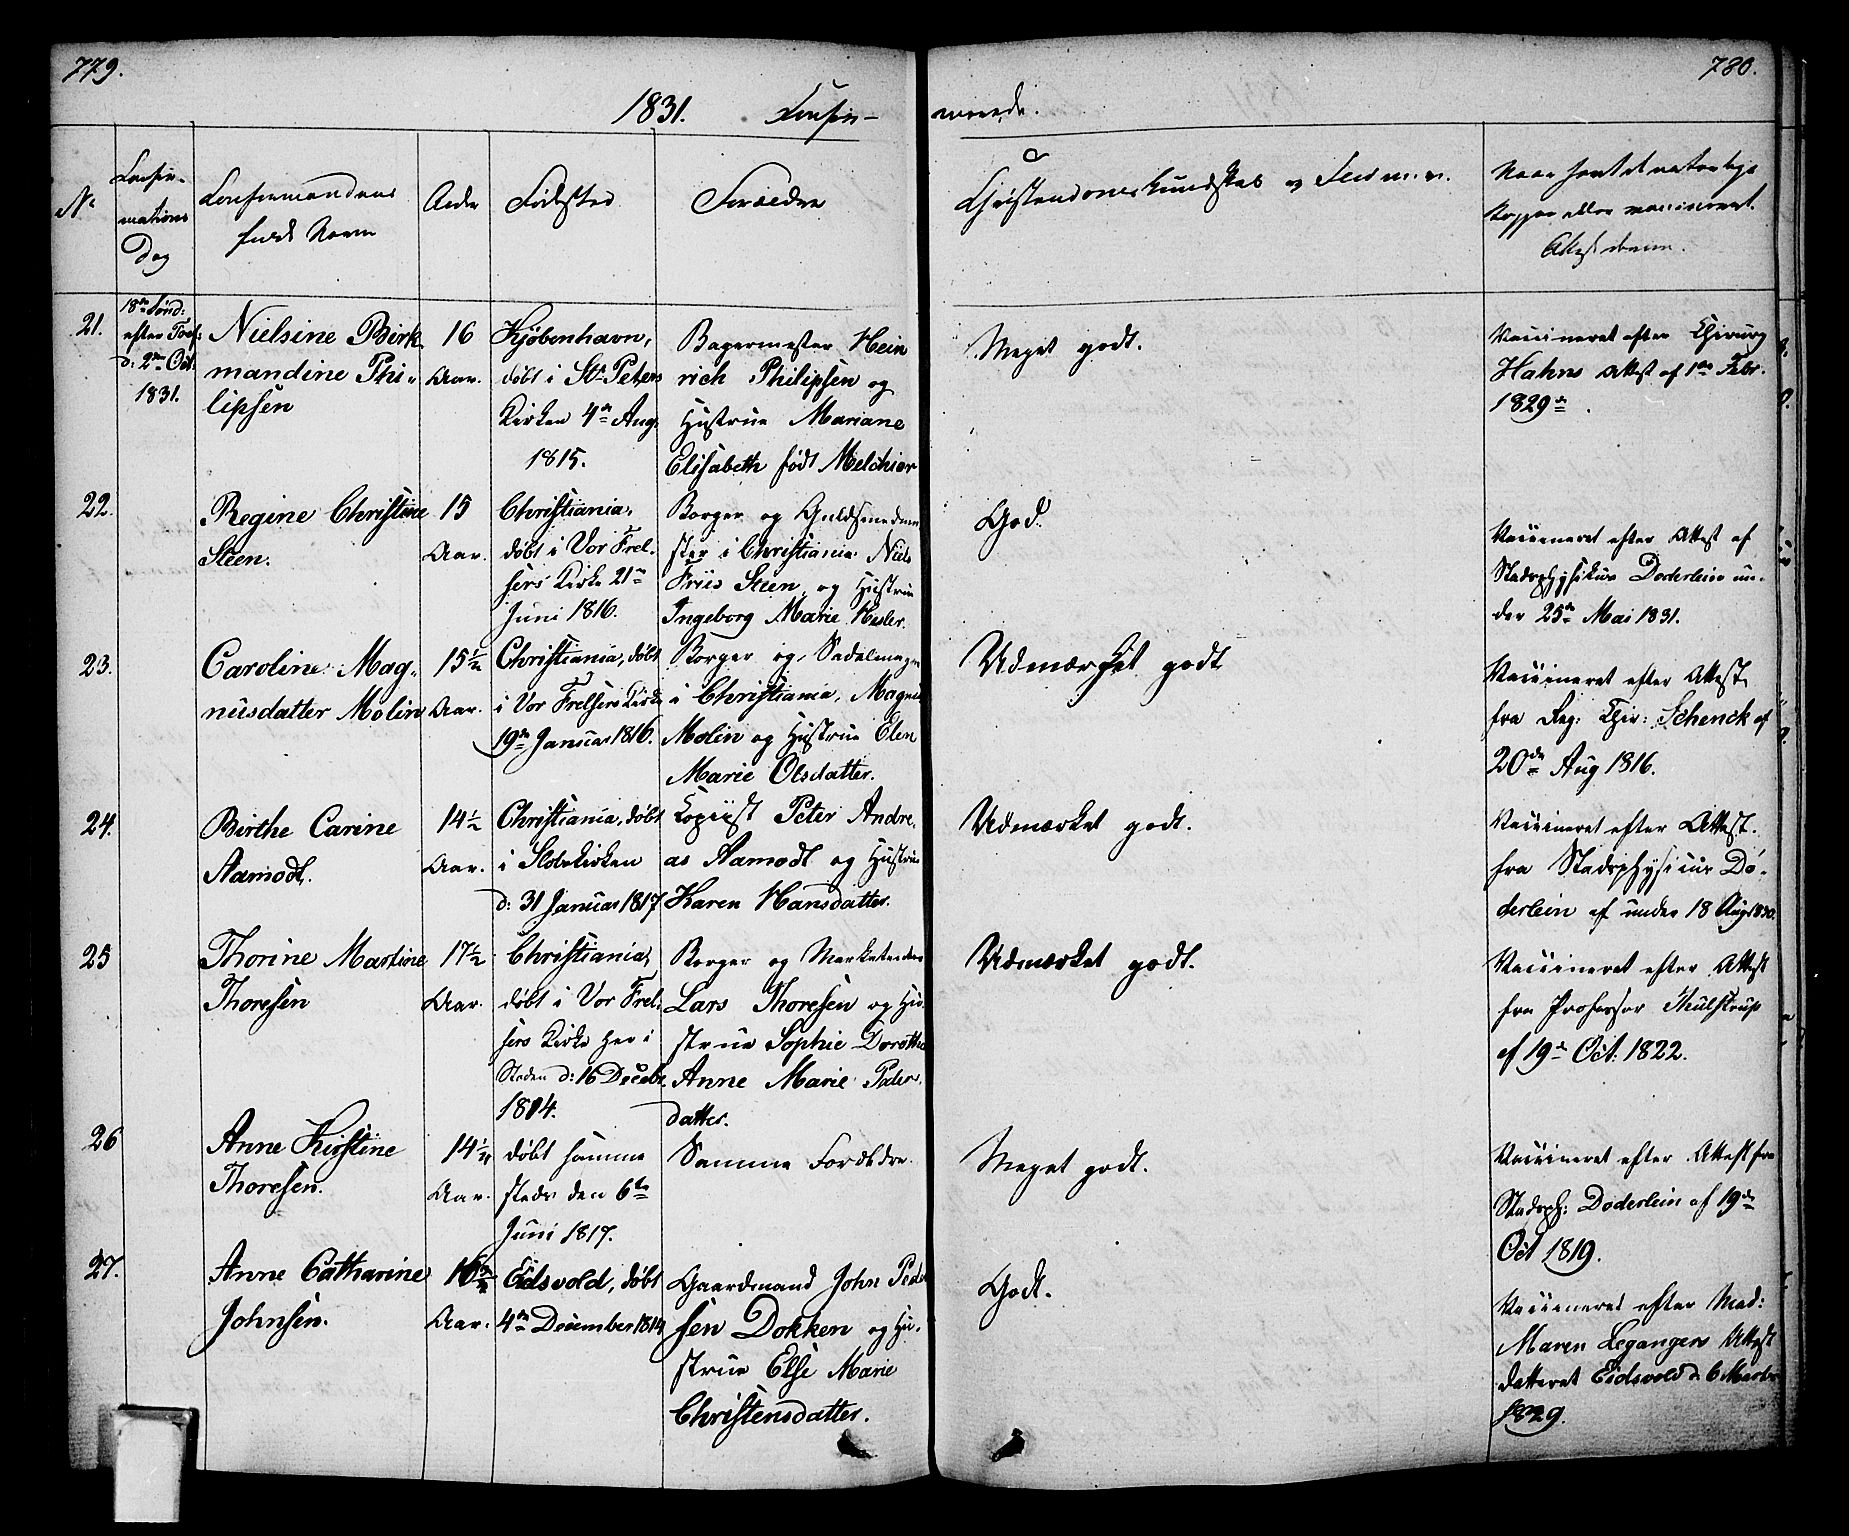 779.
780.
1831. Confir-
merede.
No
Confir-
mations
Dag
Confirmandens
fulde Navn
Alder
Fødested
Forældre
Christendomskundskab og
Naar havt de naturlige
Kopper eller vaccineret.
Attest derom.
21.
18de Sønd:
efter Tref:
d: 2den Oct:
1831.
Nielsine Birk
mandine Phi-
lipsen
16
Aar.
Kjøbenhavn,
døbt i St. Peters
Kirken 4de Aug.
1815.
Bagermester Hein
rich Philipsen og
Hustrue Mariane
Elisabeth født Melchior
Meget godt.
Vaccineret efter Chirurg
Hahns Attest af 1ste Febr.
1829
22.
Regine Christine
Steen.
15
Aar.
Christiania,
døbt i Vor Frel-
sers Kirke 21de
Juni 1816.
Borger og Guldsmedme
ster i Christiania Niels
Friis Steen, og Hustrue
Ingeborg Marie Hesler.
God.
Vaccineret efter Attest af
Stadsphysikus Døderlein un-
der 25de Mai 1831.
23.
Caroline Mag-
nusdatter Molin
15½
Aar.
Christiania, døbt
i Vor Frelsers Kirke
19de Januar 1816.
Borger og Sadelmager
i Christiania, Magnus
Molin og Hustrue Elen
Marie Olsdatter.
Udmærket godt
Vaccineret efter Attest
fra Reg: Chir: Schenck af
20de Aug 1816.
24.
Birthe Carine
Aamodt.
14½
Aar.
Christiania, døbt
i Slotskirken
d: 31 Januar 1817
Kopiist Peter Andre-
as Aamodt og Hustrue
Karen Hansdatter.
Udmærket godt.
Vaccineret efter Attest.
fra Stadsphysicus Dö-
derlein af under 18 Aug 1830.
25
Thorine Martine
Thoresen
17½
Aar.
Christiania,
døbt i Vor Frel-
sers Kirke her i
Staden d: 16 Decebr.
1814.
Borger og Marketender
Lars Thoresen og Hu-
strue Sophie Dorothe
Anne Marie Peders-
datter.
Udmærket godt.
Vaccineret efter Attest
fra Professor Thulstrup
af 19de Oct: 1822.
26
Anne Kirstine
Thoresen.
14¼
Aar.
døbt samme
steds den 6te
Juni 1817.
Samme Forældre.
Meget godt.
Vaccineret efter Attest fra
Stadsph: Döderlein af 19de
Oct 1819.
27.
Anne Catharine
Johnsen.
Aar.
Eidsvold, døbt
4de December 1814
Gaardmand John Peder
sen Dokken og Hu-
strue Else Marie
Christensdatter.
Godt.
Vaccineret efter Mad:
Maren Legangers Attest
datteret Eidsvold d. 6 Marts
1829.